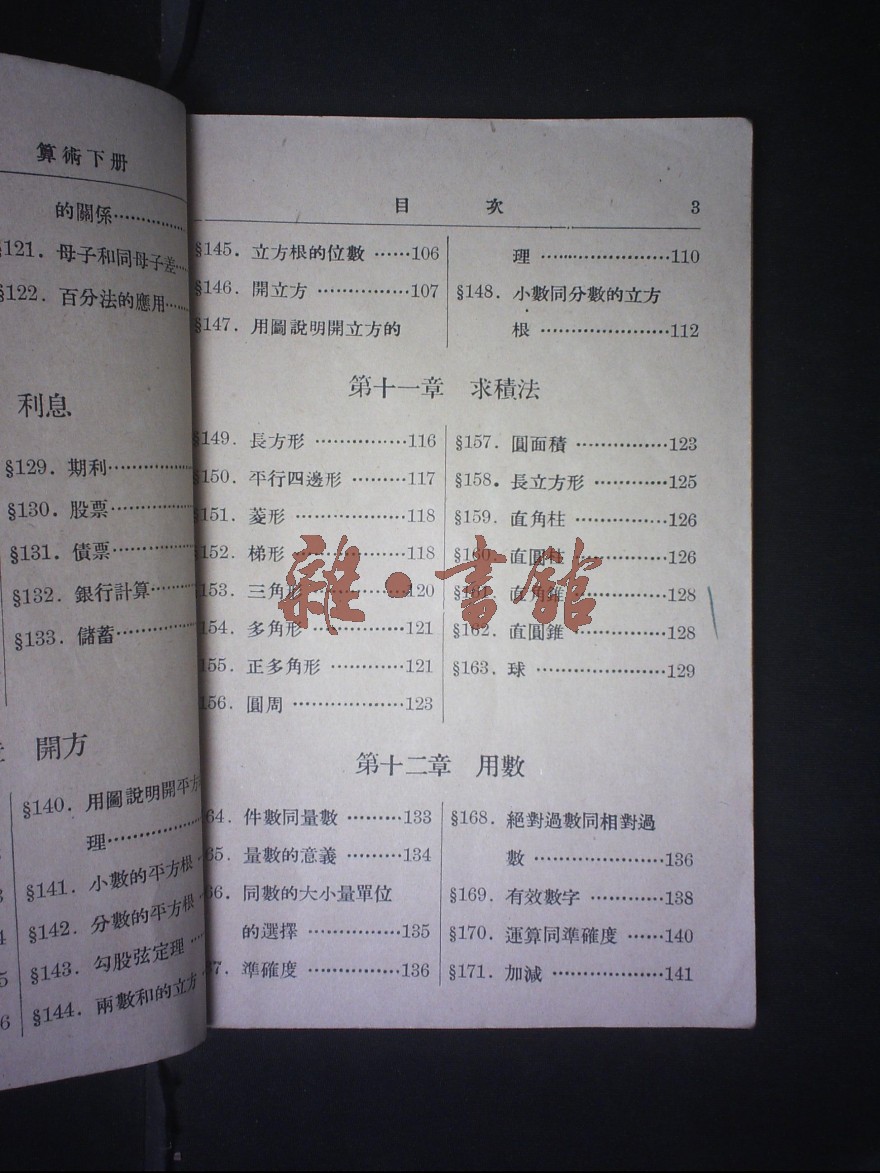 算術下册
的關係
§121. 母子和同母子差
§122. 百分法的應用
利息
§129. 期利
§130. 股票
§131. 債票
§132. 銀行計算
§133. 儲蓄
開方
§140. 用圖說明開平方
理
§141. 小數的平方根
§142. 分數的平方根
§143. 勾股弦定理
§144. 兩數和的立方
目 次 3
§145. 立方根的位數 ……106
§146. 開立方 ……………107
§147. 用圖說明開立方的
理 …………………110
§148. 小數同分數的立方
根 …………………112
第十一章 求積法
§149. 長方形 ……………116
§150. 平行四邊形 ………117
151. 菱形 ………………118
152. 梯形 ………………118
153. 三角形 ……………120
154. 多角形 ……………121
155. 正多角形 …………121
156. 圓周 ………………123
§157. 圓面積 ……………123
§158. 長立方形 …………125
§159. 直角柱 ……………126
§160. 直圓柱 ……………126
§161. 直角錐 ……………128
§162. 直圓錐 ……………128
§163. 球 …………………129
第十二章 用數
64. 件數同量數 ………133
65. 量數的意義 ………134
66. 同數的大小量單位
的選擇 ……………135
67. 準確度 ……………136
§168. 絕對過數同相對過
數 …………………136
§169. 有效數字 …………138
§170. 運算同準確度 ……140
§171. 加减 ………………141
雜·書館